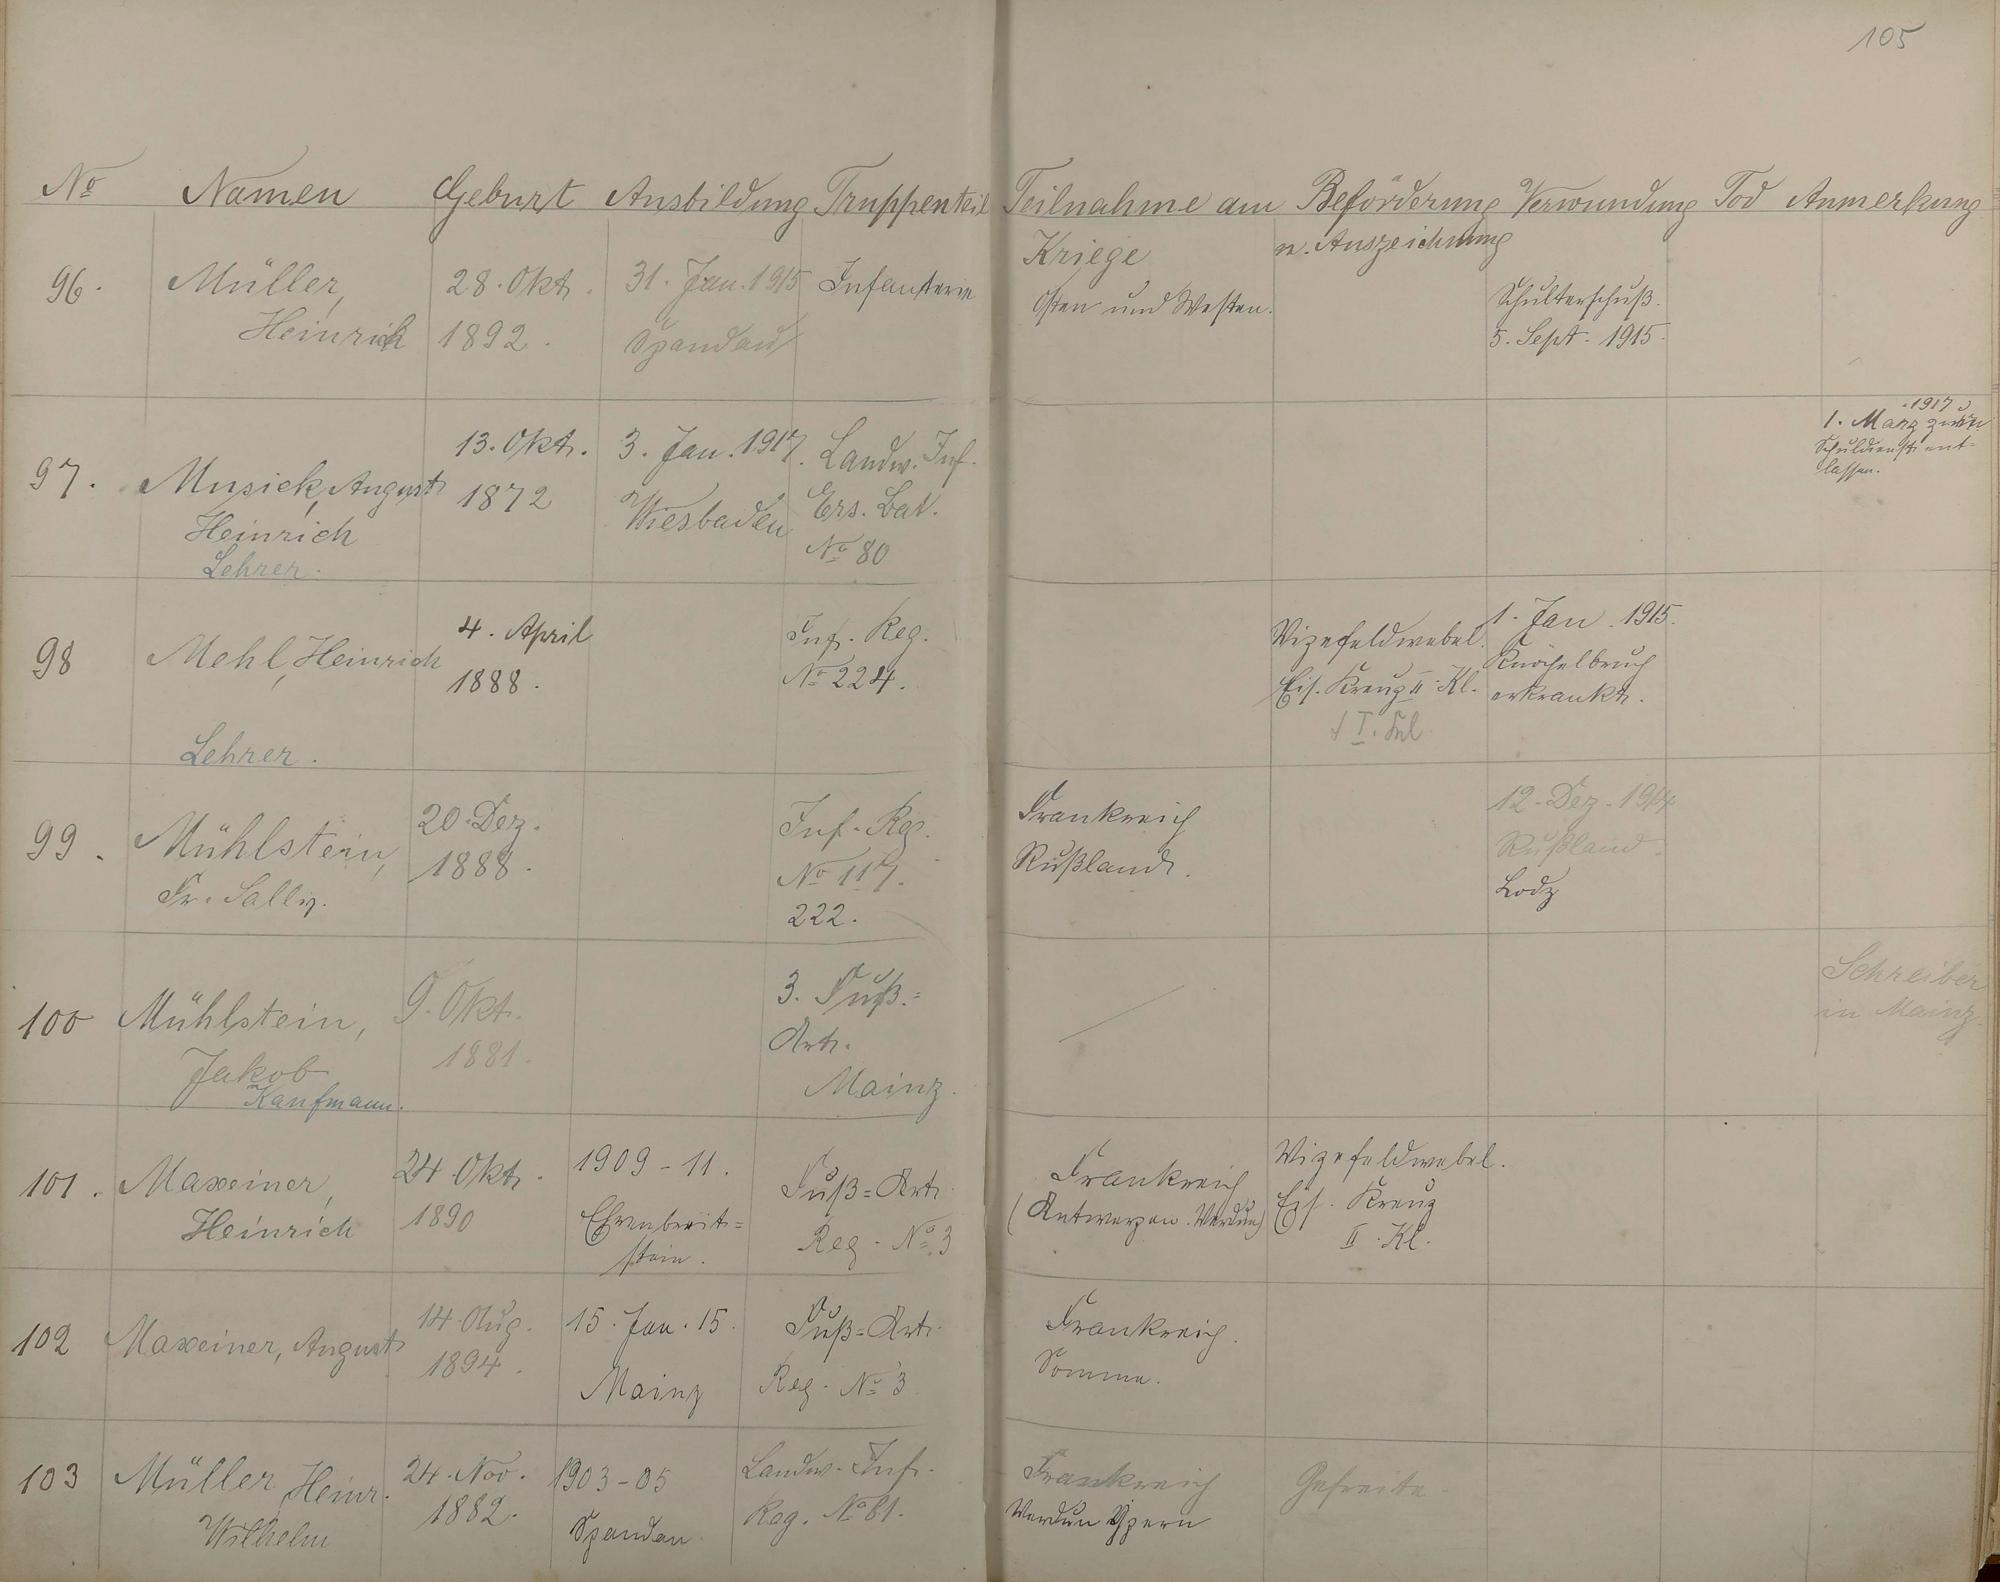 105
No Namen Geburt Ausbildung Truppenteil Teilnahme am Beförderung Verwundung Tod Anmerkung
Kriege u. Auszeichnung
96. Müller, 28. Okt. 31. Jan. 1915 Infanterie Osten und Westen. Schulterschuß.
Heinrich 1892. Spandau 5. Sept. 1915.
97. Musick, August 13. Okt. 3. Jan. 1917. Landw. Inf. 1. März 1917
Heinrich 1872 Wiesbaden Ers. Bat. Schuldienst ent-
Lehrer. No 80 lassen.
98 Mehl, Heinrich 4. April Inf. Reg. Vizefeldwebel. 1. Jan. 1915.
1888. No 224. Eis. Kreuz II. Kl. Knöchelbruch
I. erkrankt.
Lehrer.
99. Mühlstein, 20. Dez. Inf. Reg. Frankreich 12. Dez. 1914
Fr. Sally. 1888. No 117. Rußland. Rußland.
222. Lodz
100 Mühlstein, 9. Okt. 3. Fuß.= Schreiber
Jakob 1881. Art. in Mainz.
Kaufmann. Mainz.
101. Maxeiner, 24. Okt. 1909-11. Fuß=Art. Frankreich Vizefeldwebel.
Heinrich 1890 Ehrenbreit= Reg. No. 3 (Antwerpen. Verdun) Eis. Kreuz
stein. II. Kl.
102 Maxeiner, August 14. Aug. 15. Jan. 15. Fuß=Art. Frankreich.
1894. Mainz Reg. No 3 Somme.
103 Müller, Heinr. 24. Nov. 1903-05 Landw. Inf. Frankreich Gefreite.
Wilhelm 1882. Spandau Reg. No 81. Verdun Ypern